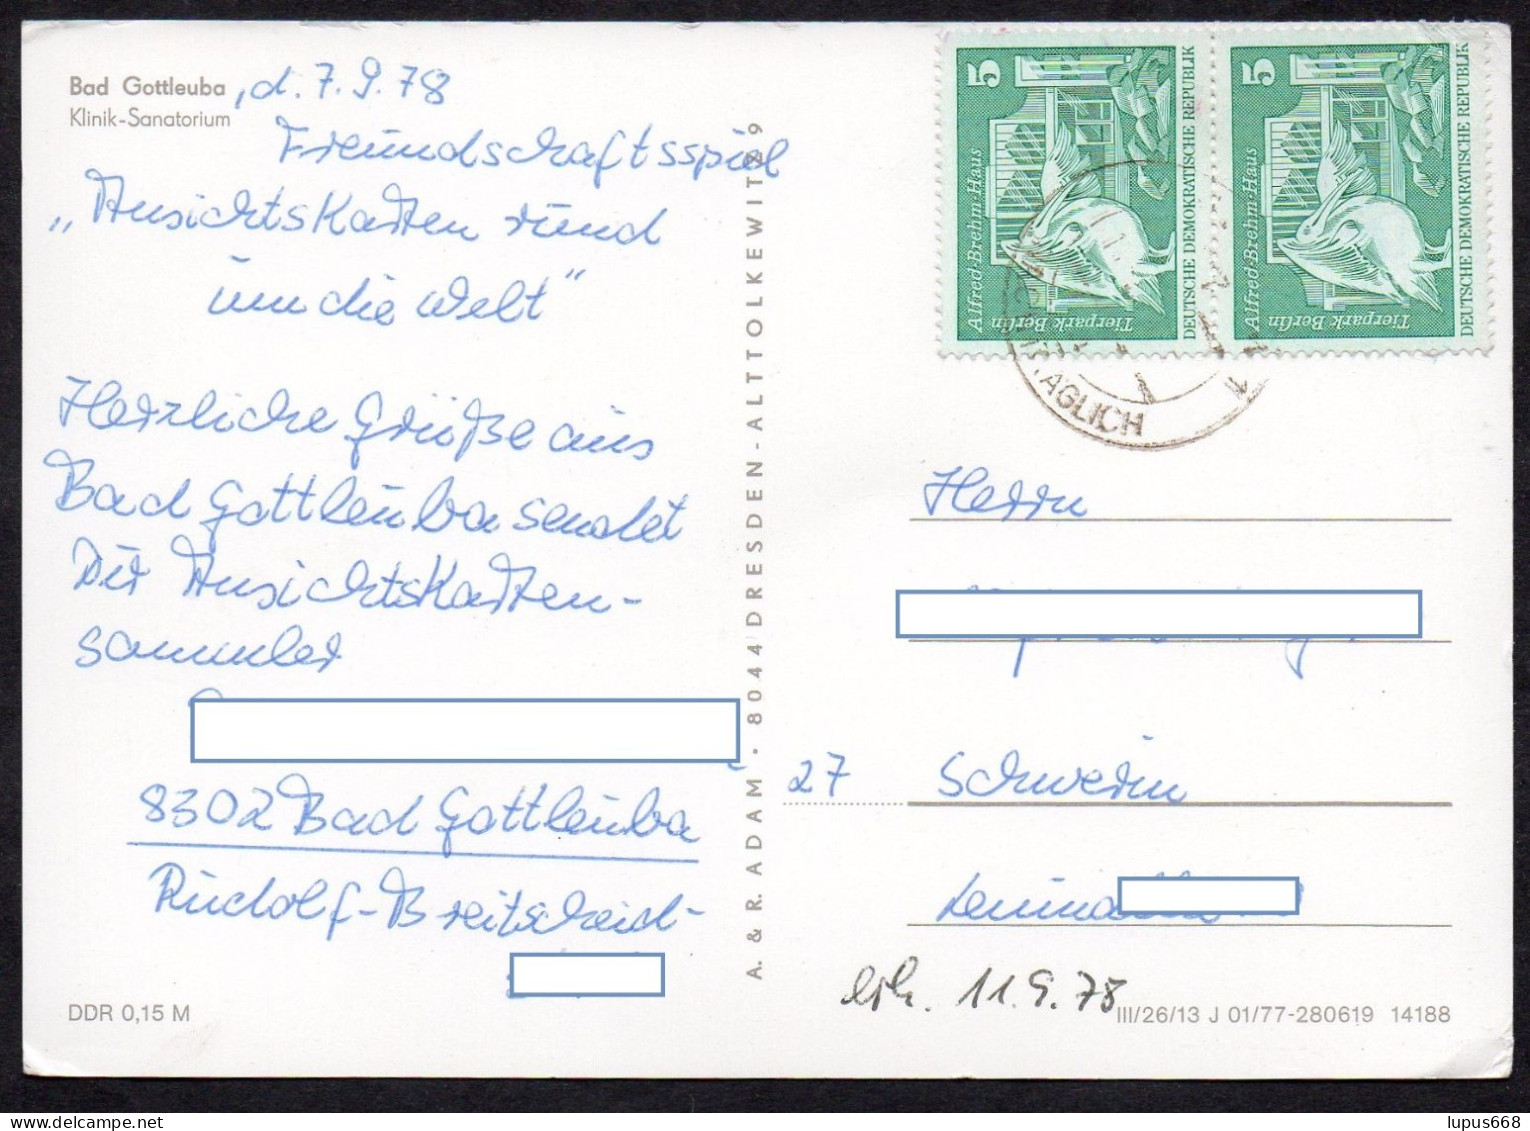 Bad Gottleuba
Klinik-Sanatorium
, d. 7.9.78
Freundschaftsspiel
„Ansichtskarten rund
um die Welt"
Herzliche Grüße aus
Bad Gottleuba sendet
Dir Ansichtskarten-
sammler
8302 Bad Gottleuba
Rudolf-Breitscheid-
DDR 0,15 M
A. & R. ADAM · 8044 DRESDEN-ALTTOLKEWITZ 29
5
Alfred-Brehm-Haus
Tierpark Berlin
DEUTSCHE DEMOKRATISCHE REPUBLIK
5
Alfred-Brehm-Haus
Tierpark Berlin
DEUTSCHE DEMOKRATISCHE REPUBLIK
Herrn
27 Schwerin
erh. 11.9.78
III/26/13 J 01/77-280619 14188
lupus668